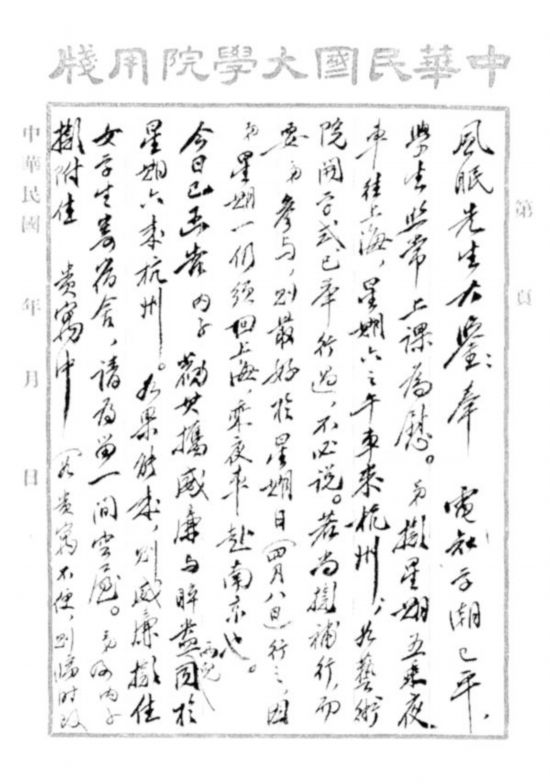 中華民國大學院用牋
第 頁
風眠先生大鑒：奉 電知學潮已平，
學生照常上課為慰。弟擬星期五乘夜
車往上海，星期六之午車來杭州，如藝術
院開學式已舉行過，不必說。若尚擬補行，而
要弟參与，則最好於星期日（四月八日）行之，因
弟星期一仍須回上海，乘夜車赴南京也。
今日已函告內子，勸其攜威廉与睟盎兩兒同於
星期六來杭州。如果能來，則威廉擬住
女學生寄宿舍，請為留一間空屋。弟及內子
擬附住 貴寓中（若貴寓不便，則臨時改
中華民國 年 月 日